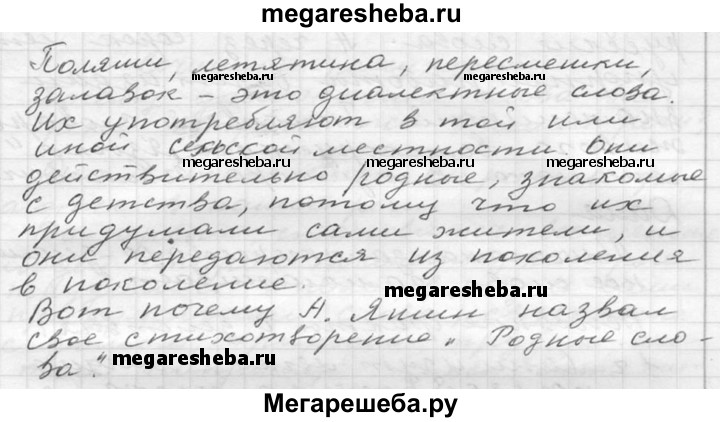 megaresheba.ru
Поляши, летятина, пересмешки,
megaresheba.ru megaresheba.ru
залавок – это диалектные слова.
Их употребляют в той или
иной сельской местности. Они
megaresheba.ru megaresheba.ru
действительно родные, знакомые
с детства, потому что их
придумали сами жители, и
они передаются из поколения
в поколение.
megaresheba.ru
Вот почему А. Яшин назвал
свое стихотворение „Родные сло-
ва".
megaresheba.ru
Мегарешеба.ру